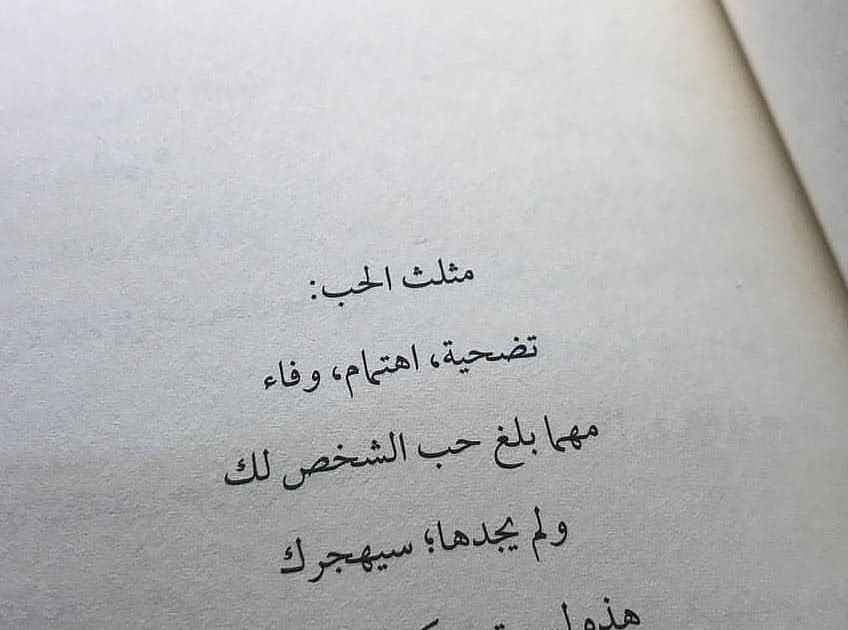 مثلث الحب:
تضحية، اهتمام، وفاء
مهما بلغ حب الشخص لك
ولم يجدها؛ سيهجرك